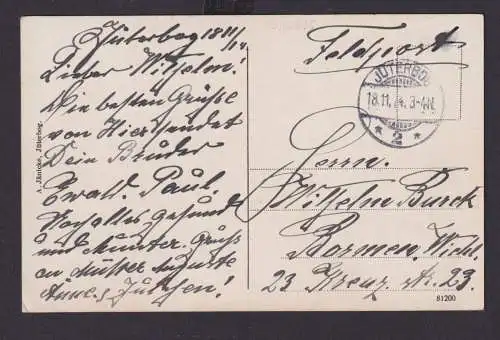 Jüterbog 18 11/14.
Lieber Wilhelm!
Die besten Grüße
von Hier sendet
Dein Bruder
Ewald. Paul.
Noch alles gesund
und munter. Gruß
an Mutter Auguste
Änne &
A. Jänicke, Jüterbog.
Feldpost
JÜTERBOG
18.11. 14. 3-4N.
* 2 *
Herrn.
Wilhelm Burck
Barmen. Wichl.
23 Kreuz str. 23.
81200